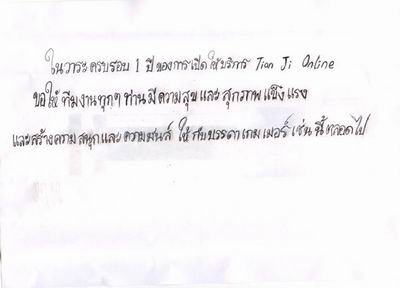 ในวาระครบรอบ 1 ปี ของการเปิดให้บริการ Tian Ji Online
ขอให้ทีมงานทุกๆ ท่าน มีความสุข และ สุภภาพ แข็ง แรง
และสร้างความสนุกและความมันส์ ให้กับบรรดาเกมเมอร์ เช่น นี้ตลอดไป